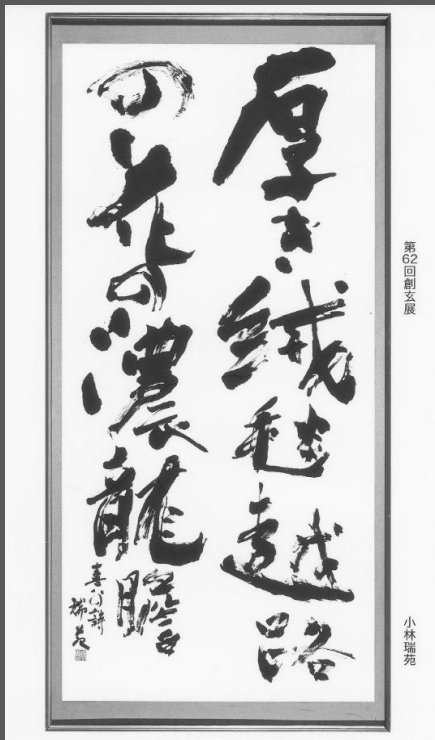 厚き絨毯越路
の花の濃龍膽
喜八詩
瑞苑
第62回創玄展
小林瑞苑